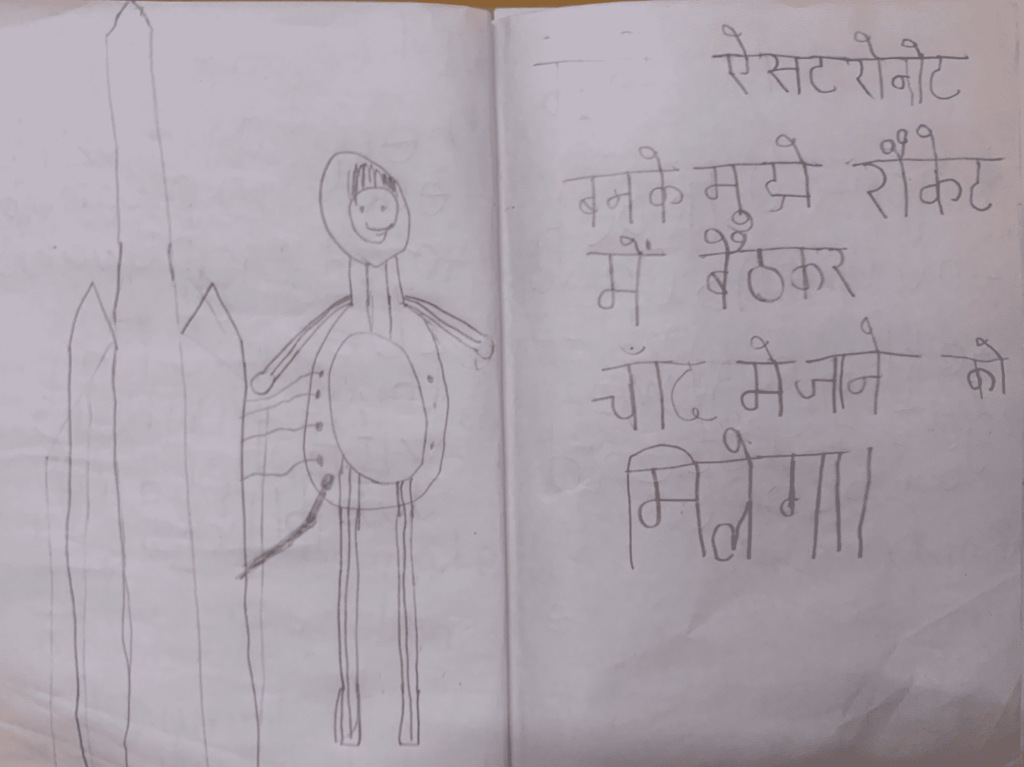 ऐसटरोनोट
बनके मुझे रॉकेट
में बैठकर
चाँद मे जाने को
मिलेगा।